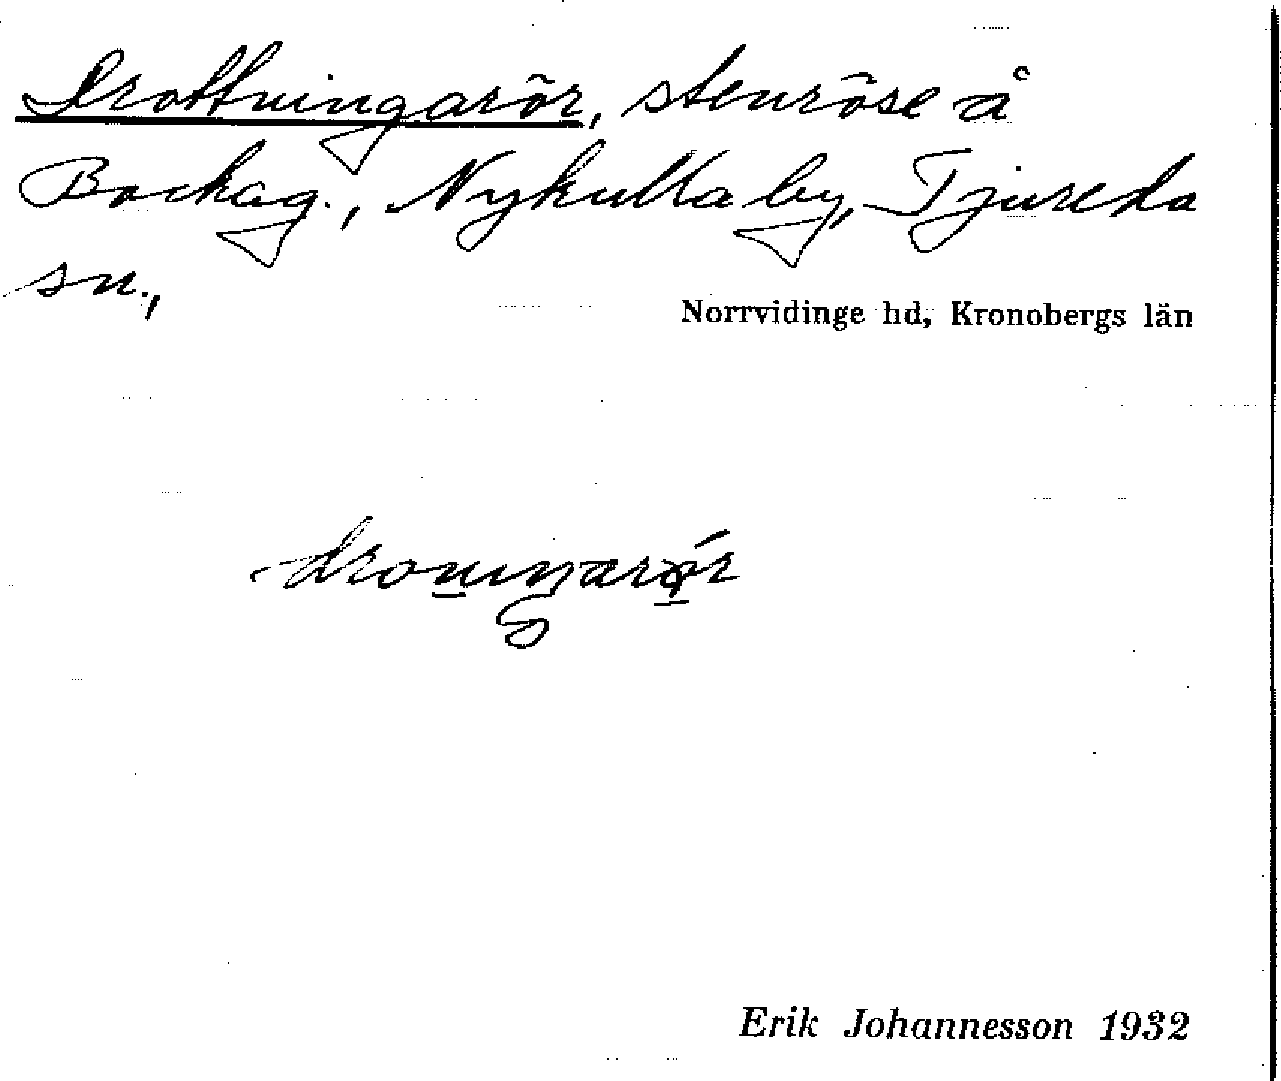 Drottningarör, stenröse å
Bockag., Nykulla by, Tjureda
sn.,
Norrvidinge hd, Kronobergs län
Erik Johannesson 1932